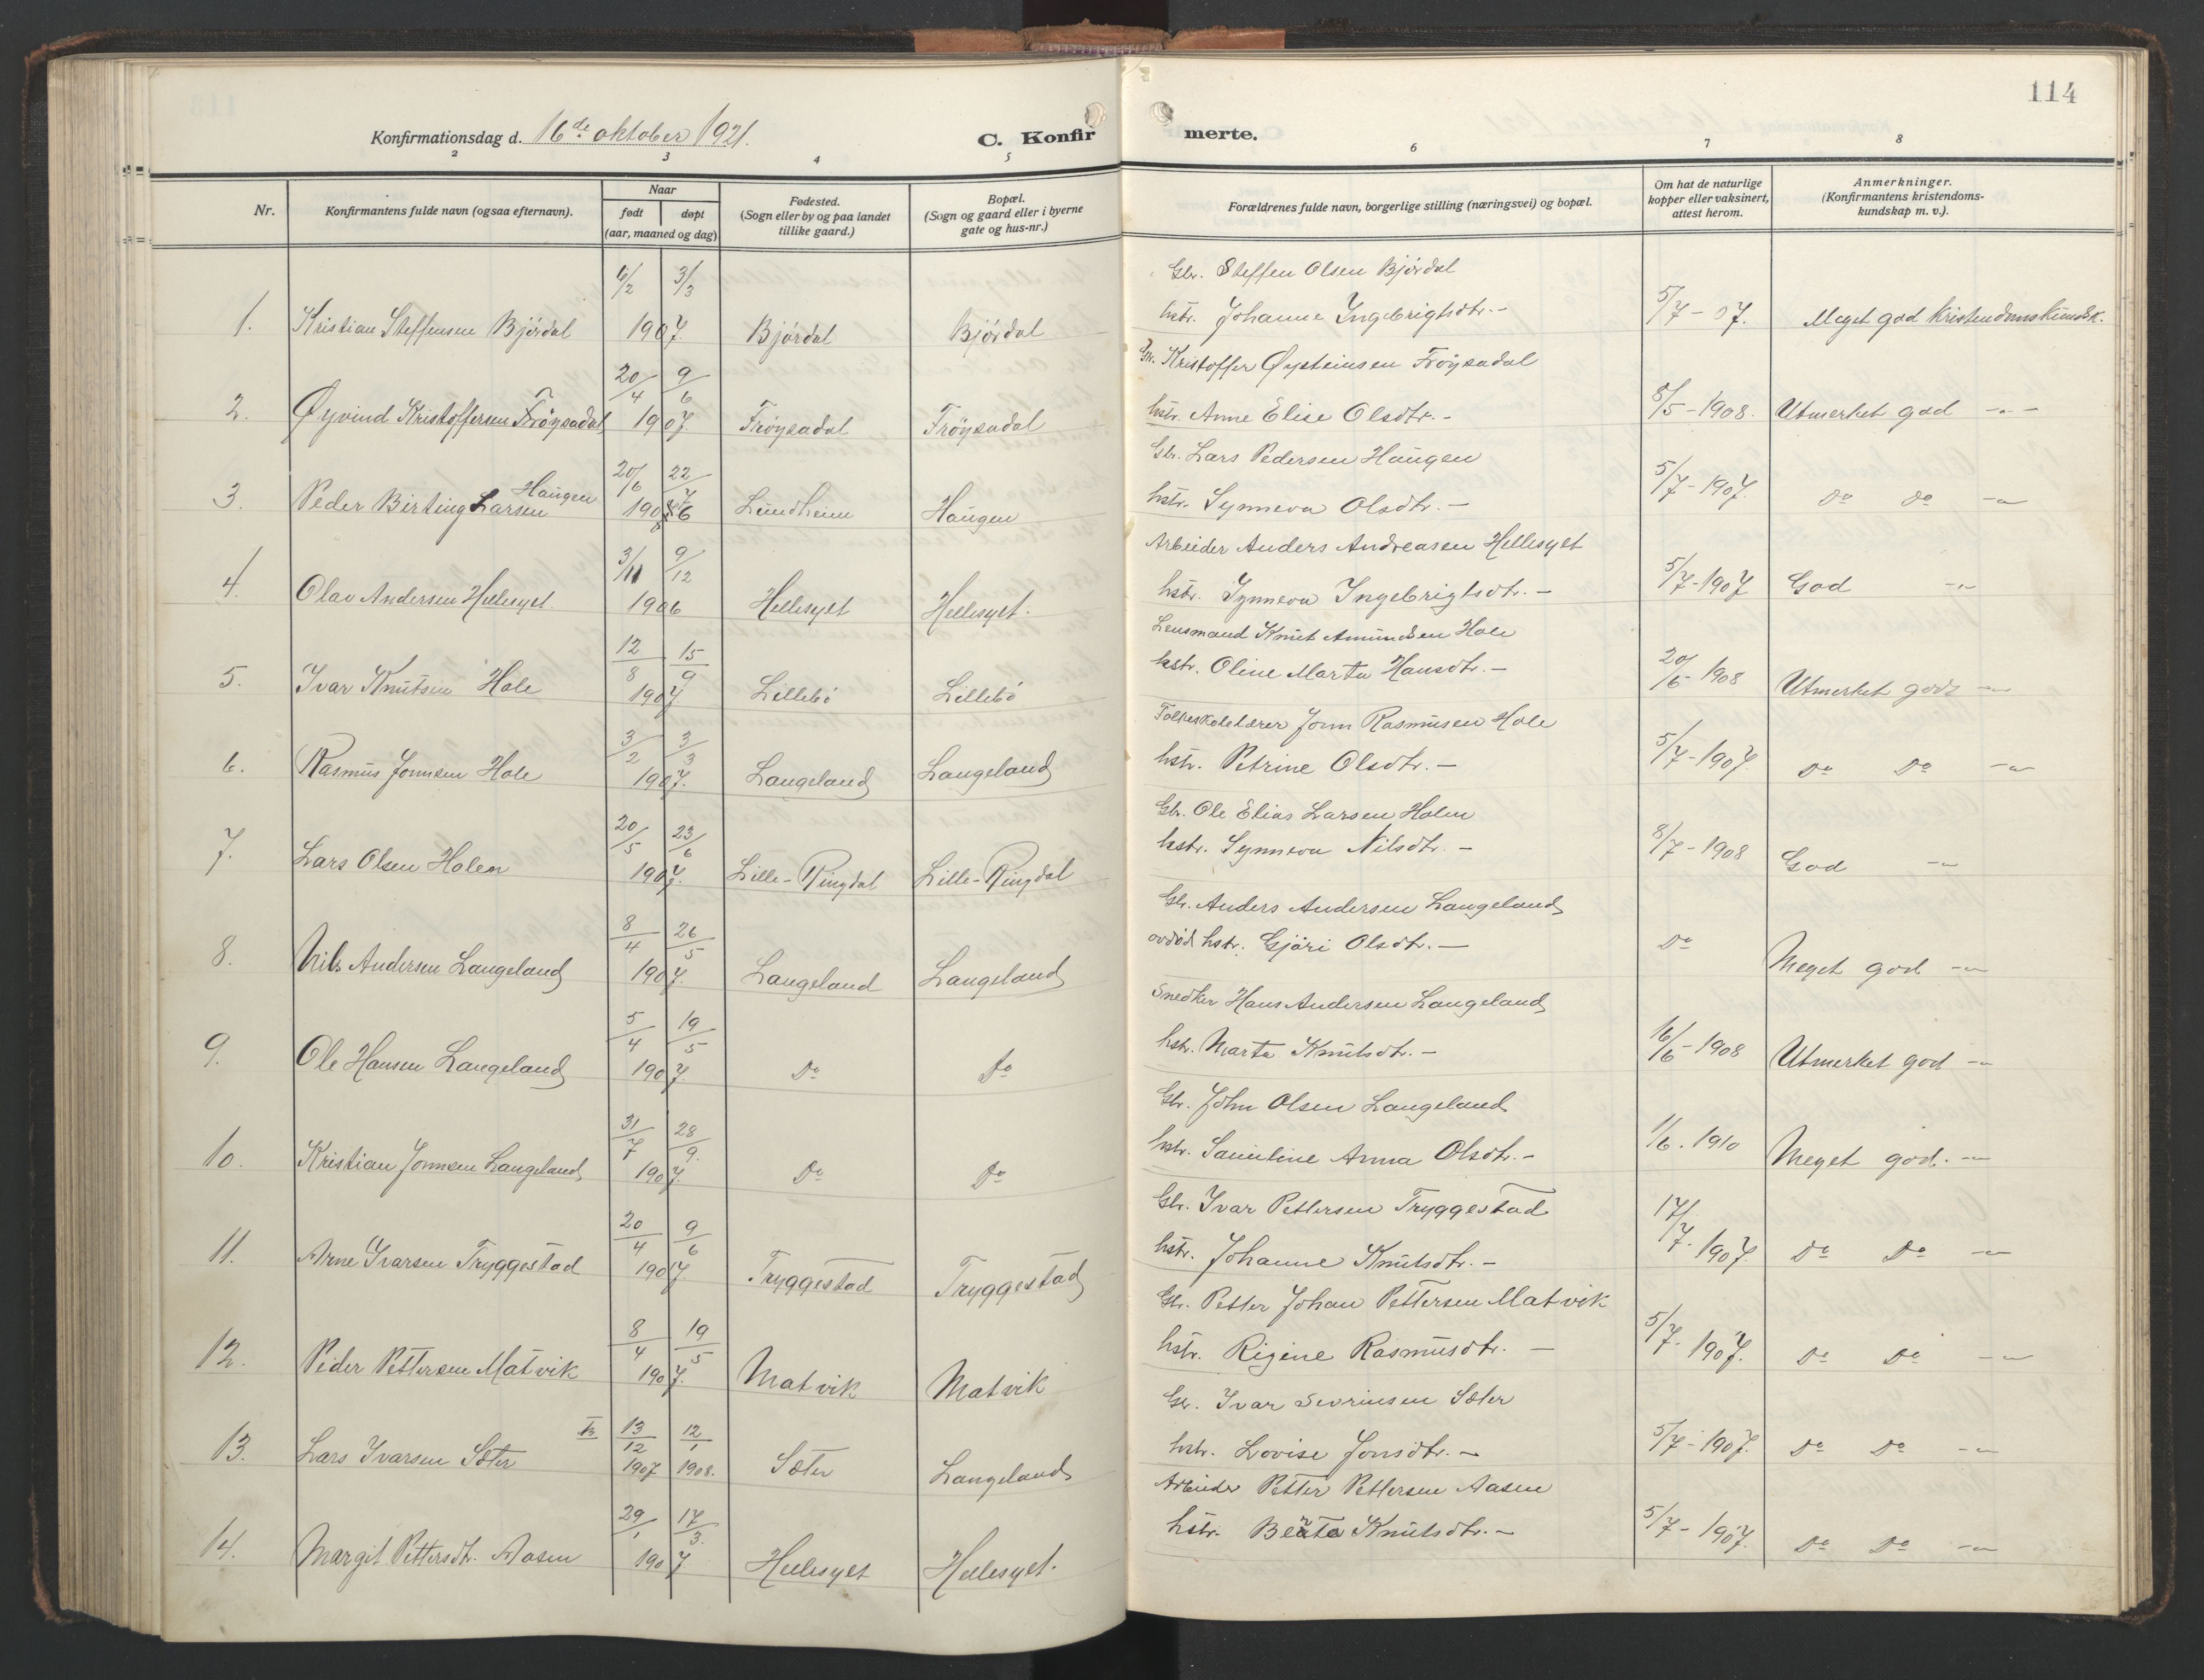 114
Konfirmationsdag d. 16de oktober 1921.
C. Konfirmerte.
2 3 4 5 6 7 8
Nr.
Konfirmantens fulde navn (ogsaa efternavn).
Naar
født døpt
(aar, maaned og dag)
Fødested.
(Sogn eller by og paa landet
tillike gaard.)
Bopæl.
(Sogn og gaard eller i byerne
gate og hus-nr.)
Forældrenes fulde navn, borgerlige stilling (næringsvei) og bopæl.
Om hat de naturlige
kopper eller vaksinert,
attest herom.
Anmerkninger.
(Konfirmantens kristendoms-
kundskap m. v.).
6/2 3/3 Gbr. Steffen Olsen Bjørdal
1. Kristian Steffensen Bjørdal 1907. Bjørdal Bjørdal hstr. Johanne Ingebrigtsdtr. - 5/7 - 07. Meget god kristendomskundsk.
20/4 9/6 Gbr. Kristoffer Øysteinsen Frøysadal
2. Øyvind Kristoffersen Frøysadal 1907. Frøysadal Frøysadal hstr. Anne Elise Olsdtr. - 8/5 - 1908. Utmerket god -"-
20/6 22/7 Gbr. Lars Pedersen Haugen
3. Peder Birting Larsen Haugen 1906 Lundheim Haugen hstr. Synneva Olsdtr. - 5/7 - 1907. Do Do -"-
3/11 9/12 Arbeider Anders Andreasen Hellesylt
4. Olav Andersen Hellesylt. 1906 Hellesylt Hellesylt. hstr. Synneva Ingebrigtsdtr. - 5/7 - 1907 God -"-
12/8 15/9 Lensmand Knut Amundsen Hole
5. Ivar Knutsen Hole 1907 Lillebø Lillebø hstr. Oline Marta Hansdtr. - 20/5 - 1908 Utmerket god -"-
3/2 3/3 Folkeskolelærer Jonn Rasmusen Hole
6. Rasmus Jonnsen Hole 1907. Langeland Langeland hstr. Petrine Olsdtr. - 5/7 - 1907. Do Do -"-
20/5 23/6 Gbr. Ole Elias Larsen Holen
7. Lars Olsen Holen 1907. Lille-Ringdal Lille-Ringdal hstr. Synneva Nilsdtr. - 8/7 - 1908 God -"-
8/4 26/5 Gbr. Anders Andersen Langeland
8. Nils Andersen Langeland 1907. Langeland Langeland avdød hstr. Gjøri Olsdtr. - Do Meget god -"-
5/4 19/5 Snedker Hans Andersen Langeland
9. Ole Hansen Langeland 1907. Do Do hstr. Marta Knutsdtr. - 16/6 - 1908 Utmerket god -"-
31/7 28/9. Gbr. John Olsen Langeland
10. Kristian Jonnsen Langeland 1907. Do Do hstr. Sauiline Anna Olsdtr. - 1/6. 1910 Meget god. -"-
20/4 9/6 Gbr. Ivar Pettersen Tryggestad
11. Arne Ivarsen Tryggestad 1907. Tryggestad Tryggestad hstr. Johanne Knutsdtr. - 17/7. 1907. Do Do -"-
8/4 19/5 Gbr. Petter Johan Pettersen Matvik
12. Peder Pettersen Matvik 1907. Matvik Matvik hstr. Rigine Rasmusdtr. - 5/7. 1907. Do Do -"-
13/12 12/1 Gbr. Ivar Sevrinsen Sæter
13. Lars Ivarsen Sæter 1907 1908. Sæter Langeland hstr. Lovise Jonsdtr. - 5/7 - 1907. Do Do -"-
29/1 17/3. Arbeider Petter Pettersen Aasen
14. Margit Pettersdtr. Aasen 1907 Hellesylt Hellesylt. hstr. Beate Knutsdtr. - 5/7 - 1907. Do Do -"-